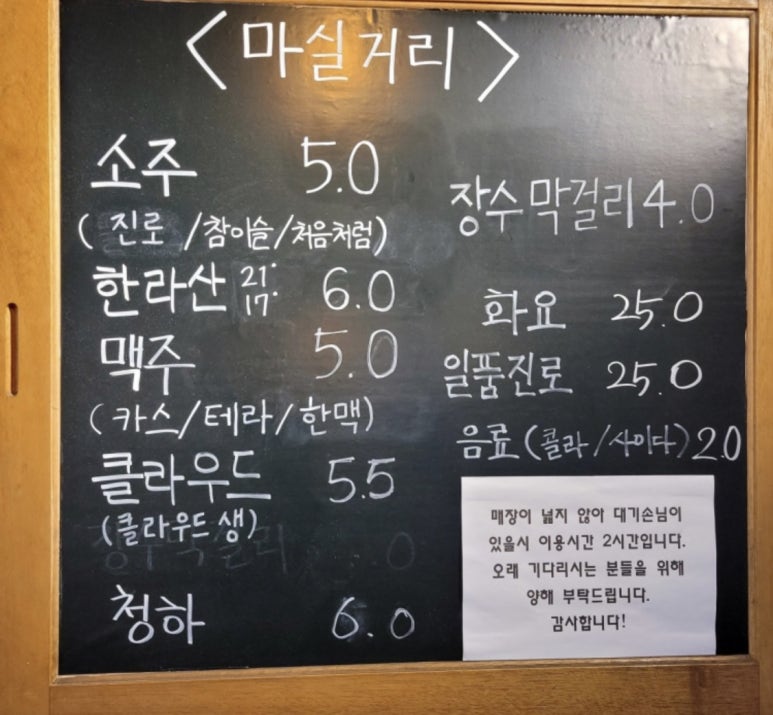 <마실거리>
소주 5.0
(진로/참이슬/처음처럼)
한라산 21. 17. 6.0
맥주 5.0
(카스/테라/한맥)
클라우드 5.5
(클라우드생)
청하 6.0
장수막걸리 4.0
화요 25.0
일품진로 25.0
음료(콜라/사이다) 2.0
매장이 넓지 않아 대기손님이
있을시 이용시간 2시간입니다.
오래 기다리시는 분들을 위해
양해 부탁드립니다.
감사합니다!